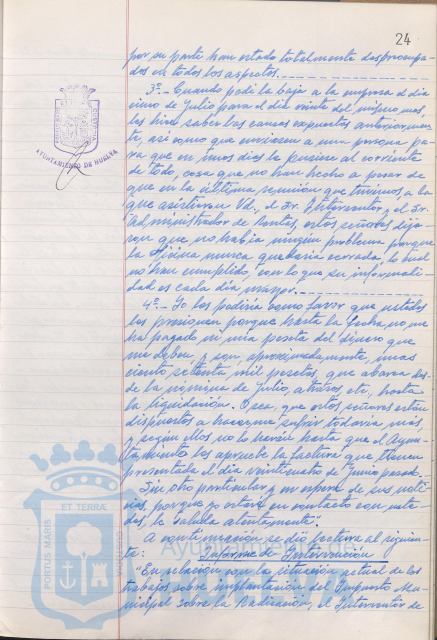 24
por su parte han estado totalmente despreocupa-
dos en todos los aspectos.
3º.- Cuando pedí la baja a la empresa el día
cinco de Julio para el día veinte del mismo mes,
les hice saber las causas expuestas anteriormen-
te, así como que enviasen a una persona pa-
ra que en unos días la pusiese al corriente
de todo, cosa que no han hecho a pesar de
que en la última reunión que tuvimos a la
que asistieron Vd., el Sr. Interventor, el Sr.
Administrador de Rentas, estos señores dije-
ron que no había ningún problema porque
la Oficina nunca quedaría cerrada, lo cual
no han cumplido, con lo que su informali-
dad es cada día mayor.
4º.- Yo les pediría como favor que ustedes
les presionen porque hasta la fecha no me
ha pagado ni una peseta del dinero que
me deben, y son aproximadamente, unas
ciento setenta mil pesetas, que abarca des-
de la nómina de Julio, atrasos, etc., hasta
la liquidación. O sea, que estos señores están
dispuestos a hacerme sufrir todavía más,
y según ellos no lo harán hasta que el Ayun-
tamiento les apruebe la factura que tienen
presentada el día veinticuatro de Junio pasado.
Sin otro particular y en espera de sus noti-
cias, porque yo estaré en contacto con uste-
des, le saluda atentamente".
A continuación se dio lectura al siguien-
te: Informe de Intervención
"En relación con la situación actual de los
trabajos sobre implantación del Impuesto Mu-
nicipal sobre la Radicación, el Interventor de
AYUNTAMIENTO DE HUELVA
PORTUS MARIS
ET TERRAE
CUSTODIA